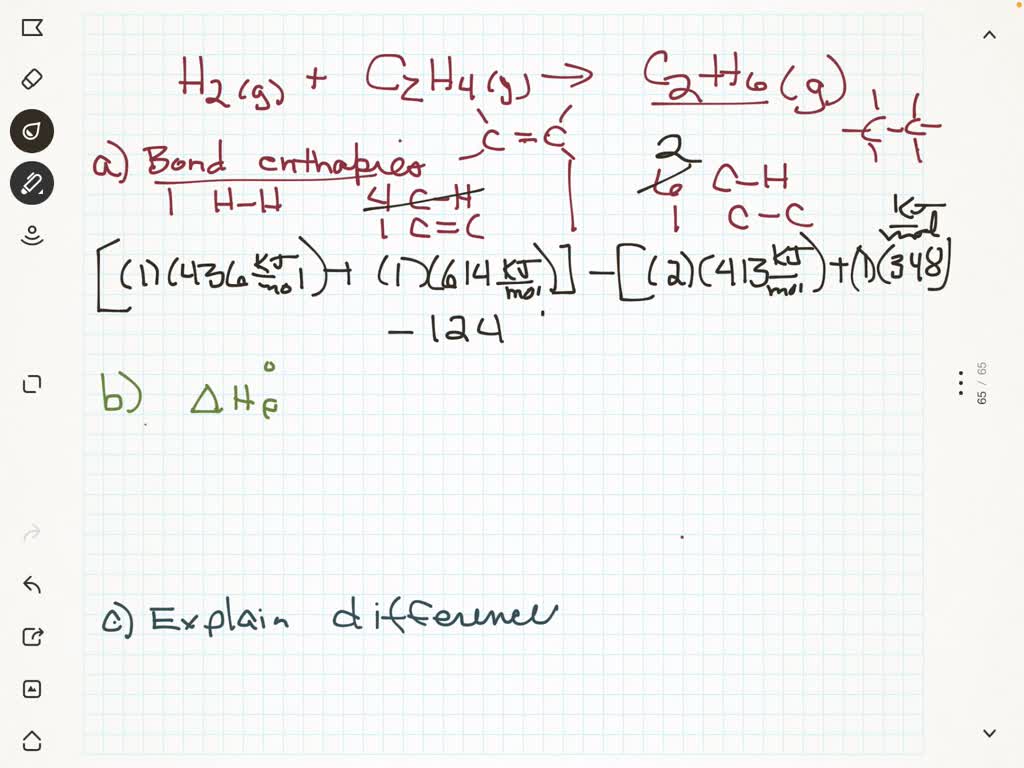 H2(g) + C2H4(g) → C2H6(g)
C=C
C-C
a) Bond enthalpies
1 H-H
4 C-H
1 C=C
2
6 C-H
1 C-C
[(1)(436 KJ/mol) + (1)(614 KJ/mol)] - [(2)(413 KJ/mol) + (1)(348 KJ/mol)]
-124
b) ΔHf°
c) Explain difference
65 / 65